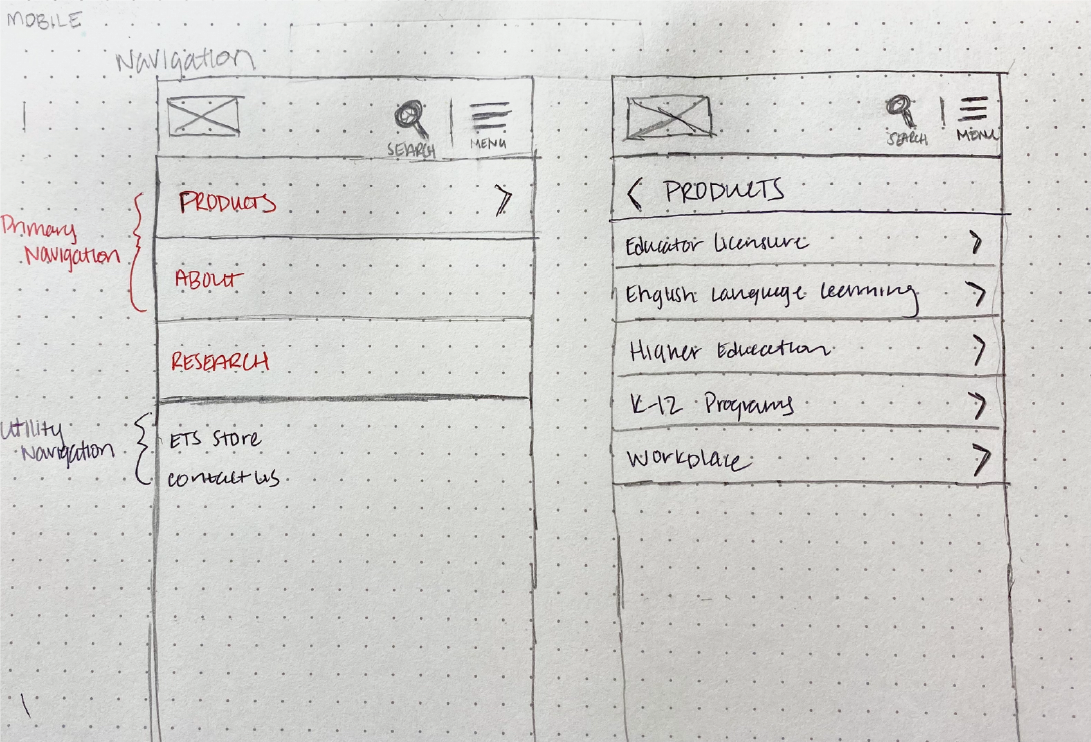 MOBILE
Navigation
SEARCH
MENU
Primary
Navigation
PRODUCTS
ABOUT
RESEARCH
Utility
Navigation
ETS Store
Contact Us
SEARCH
MENU
PRODUCTS
Educator Licensure
English Language Learning
Higher Education
K-12 Programs
Workplace